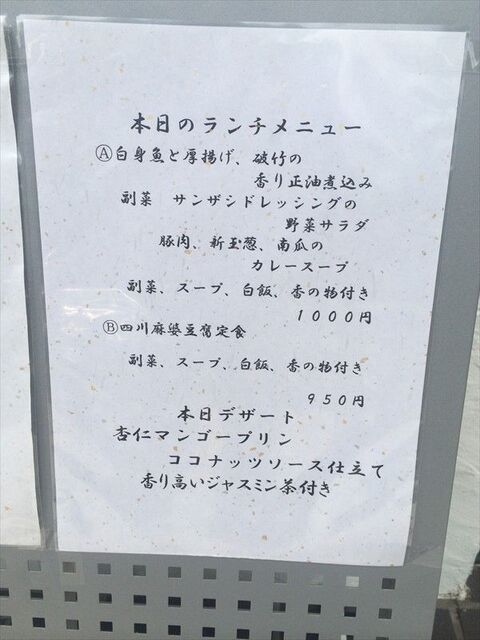 本日のランチメニュー
Ⓐ白身魚と厚揚げ、破竹の
香り正油煮込み
副菜 サンザシドレッシングの
野菜サラダ
豚肉、新玉葱、南瓜の
カレースープ
副菜、スープ、白飯、香の物付き
1000円
Ⓑ四川麻婆豆腐定食
副菜、スープ、白飯、香の物付き
950円
本日デザート
杏仁マンゴープリン
ココナッツソース仕立て
香り高いジャスミン茶付き